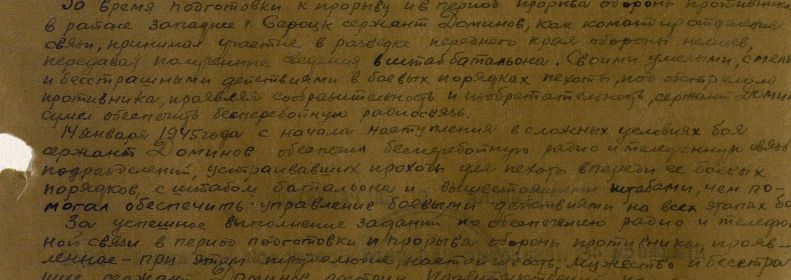 За время подготовки к прорыву и в период прорыва обороны противника
в районе западнее г. Сероцк сержант Доминов, как командир отделения
связи, принимал участие в разведке переднего края обороны немцев,
передавая полученные сведения в штаб батальона. Своими умелыми, смелы
и бесстрашными действиями в боевых порядках пехоты, под обстрелом
противника, проявляя сообразительность и изобретательность, сержант Домин
сумел обеспечить бесперебойную радиосвязь.
14 января 1945 года с начала наступления в сложных условиях боя
сержант Доминов обеспечил бесперебойную радио и телефонную связь
подразделений, устраивавших проходы для пехоты впереди ее боевых
порядков, с штабом батальона и вышестоящими штабами, чем по-
могал обеспечить управление боевыми действиями на всех этапах бо
За успешное выполнение заданий по обеспечению радио и телефон
ной связи в период подготовки и прорыва обороны противника, прояв-
ленное при этом трудолюбие, настойчивость, мужество и бесстра
шие сержант Доминов достоин Правительственной